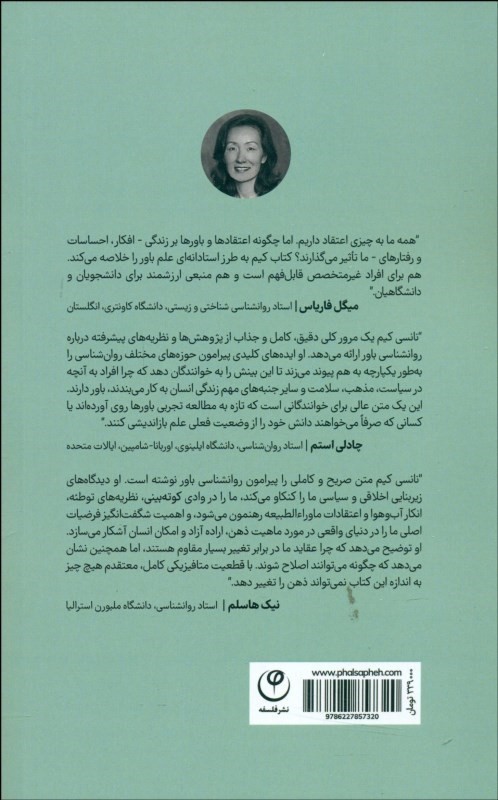 "همه ما به چیزی اعتقاد داریم. اما چگونه اعتقادها و باورها بر زندگی - افکار، احساسات
و رفتارهای - ما تأثیر می‌گذارند؟ کتاب کیم به طرز استادانه‌ای علم باور را خلاصه می‌کند.
هم برای افراد غیرمتخصص قابل‌فهم است و هم منبعی ارزشمند برای دانشجویان و
دانشگاهیان."
میگل فاریاس | استاد روانشناسی شناختی و زیستی، دانشگاه کاونتری، انگلستان
"نانسی کیم یک مرور کلی دقیق، کامل و جذاب از پژوهش‌ها و نظریه‌های پیشرفته درباره
روانشناسی باور ارائه می‌دهد. او ایده‌های کلیدی پیرامون حوزه‌های مختلف روان‌شناسی را
به‌طور یکپارچه به هم پیوند می‌زند تا این بینش را به خوانندگان دهد که چرا افراد به آنچه
در سیاست، مذهب، سلامت و سایر جنبه‌های مهم زندگی انسان به کار می‌بندند، باور دارند.
این یک متن عالی برای خوانندگانی است که تازه به مطالعه تجربی باورها روی آورده‌اند یا
کسانی که صرفاً می‌خواهند دانش خود را از وضعیت فعلی علم بازاندیشی کنند."
چادلی استم | استاد روان‌شناسی، دانشگاه ایلینوی، اوربانا-شامپین، ایالات متحده
"نانسی کیم متن صریح و کاملی را پیرامون روانشناسی باور نوشته است. او دیدگاه‌های
زیربنایی اخلاقی و سیاسی ما را کنکاو می‌کند، ما را در وادی کوته‌بینی، نظریه‌های توطئه،
انکار آب‌وهوا و اعتقادات ماوراءالطبیعه رهنمون می‌شود، و اهمیت شگفت‌انگیز فرضیات
اصلی ما را در دنیای واقعی در مورد ماهیت ذهن، اراده آزاد و امکان انسان آشکار می‌سازد.
او توضیح می‌دهد که چرا عقاید ما در برابر تغییر بسیار مقاوم هستند، اما همچنین نشان
می‌دهد که چگونه می‌توانند اصلاح شوند. با قطعیت متافیزیکی کامل، معتقدم هیچ چیز
به اندازه این کتاب نمی‌تواند ذهن را تغییر دهد."
نیک هاسلم | استاد روانشناسی، دانشگاه ملبورن استرالیا
نشر فلسفه
www.phalsapheh.com
9786227857320
۲۲۹,۰۰۰ تومان